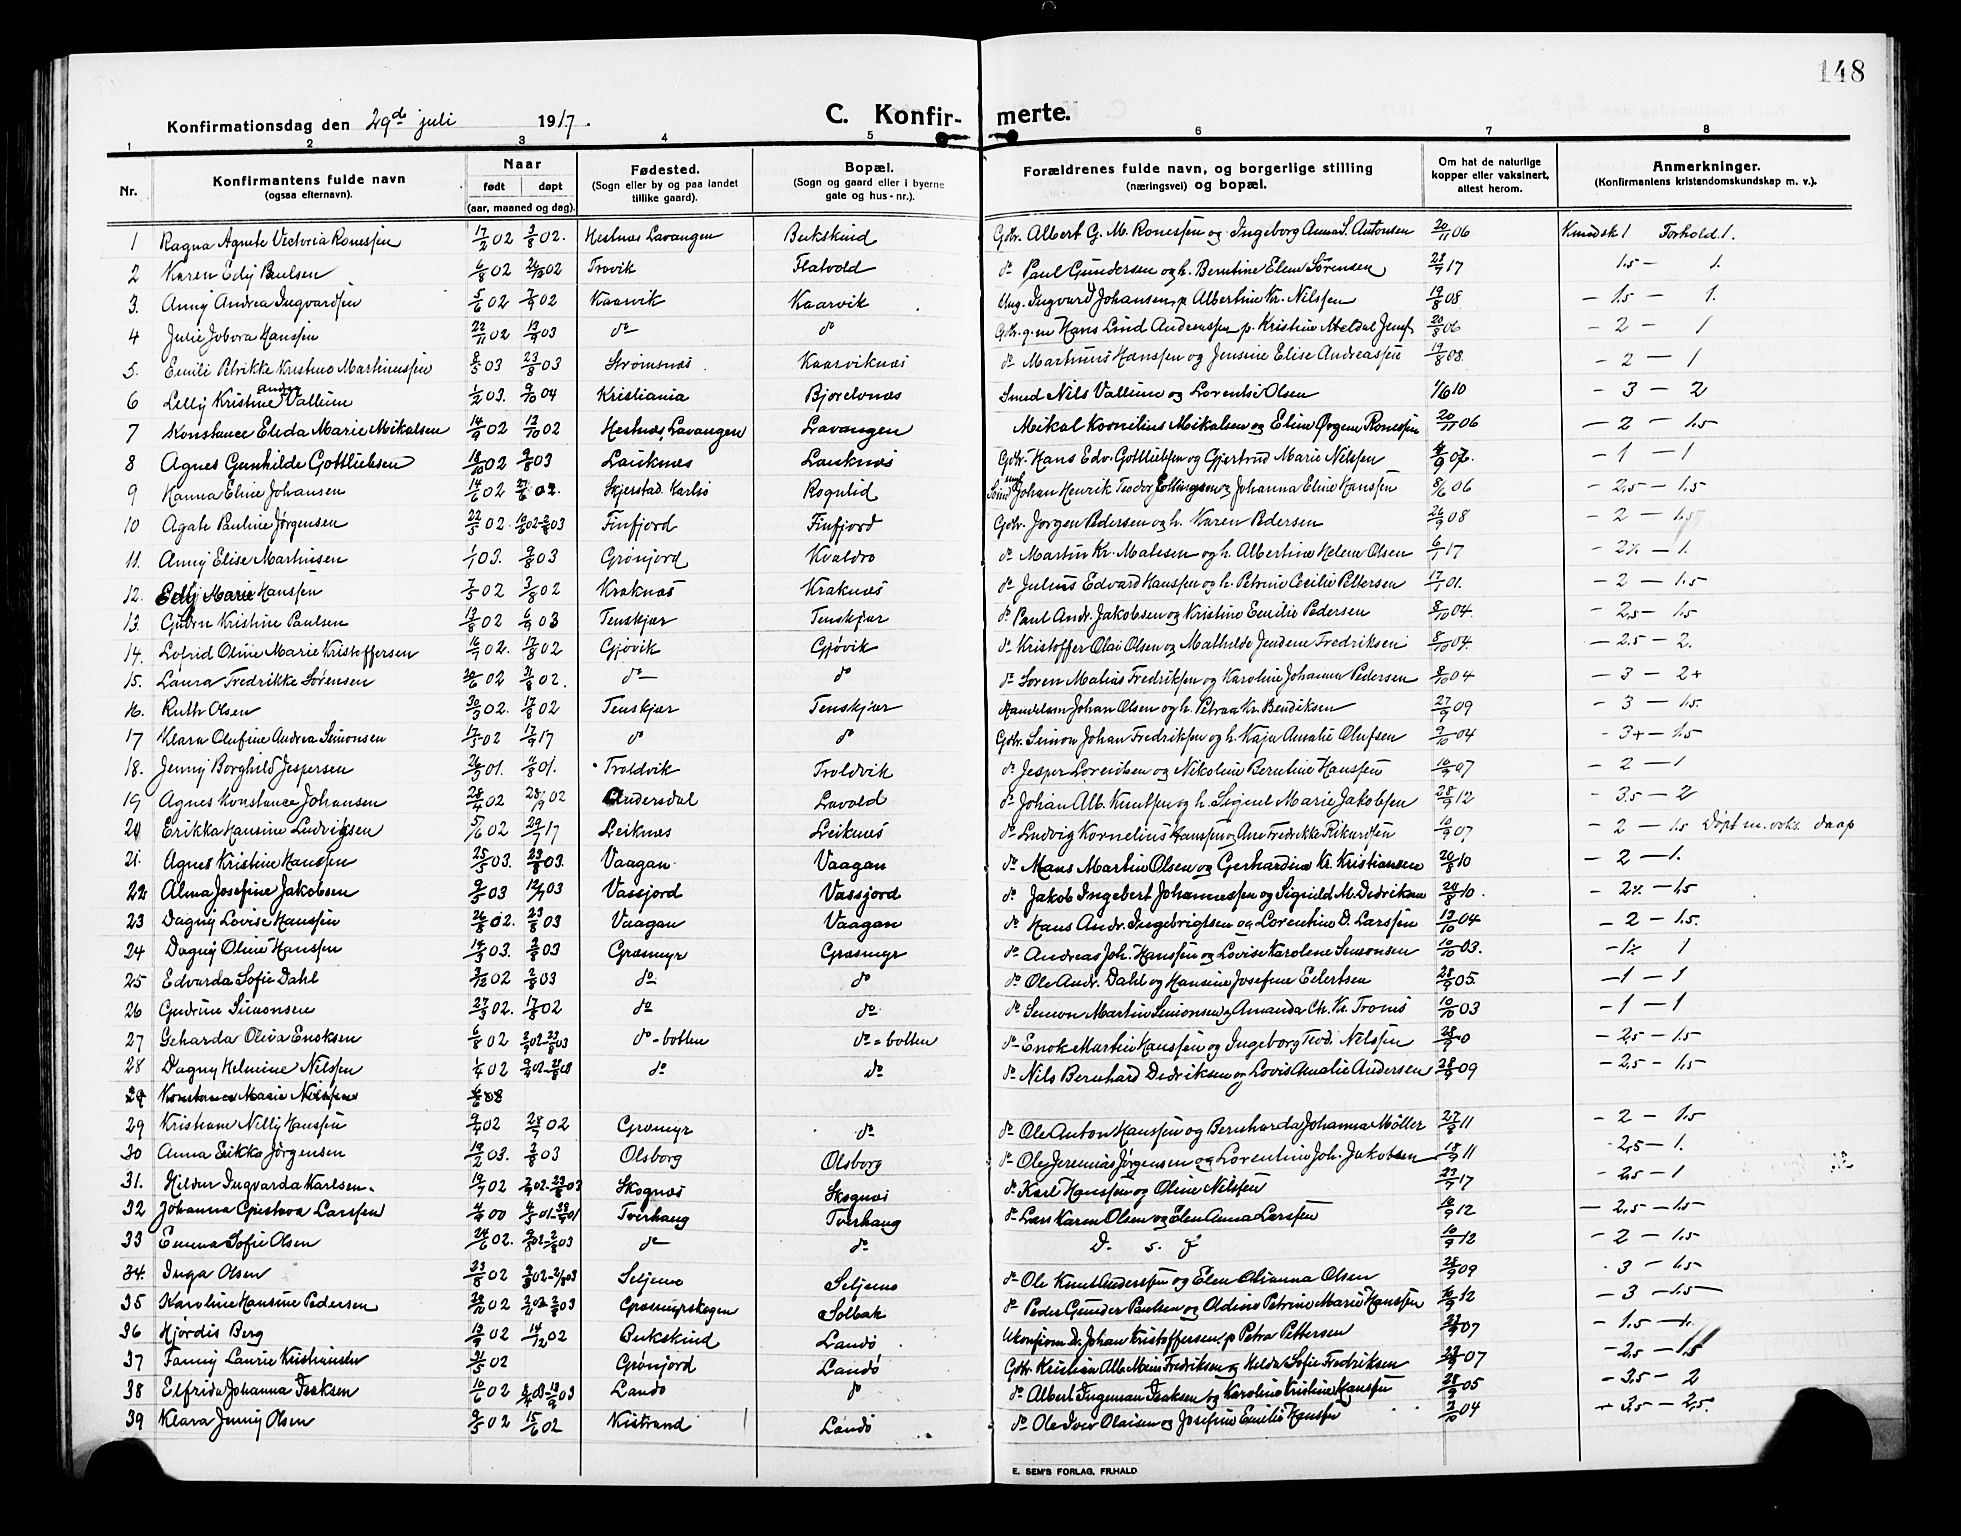 148
Konfirmationsdag den 29d juli 1917.
C. Konfir- merte.
1 2 3 4 5 6 7 8
Nr. Konfirmantens fulde navn (ogsaa efternavn). Naar født døpt (aar, maaned og dag). Fødested. (Sogn eller by og paa landet tillike gaard). Bopæl. (Sogn og gaard eller i byerne gate og hus-nr.). Forældrenes fulde navn, og borgerlige stilling (næringsvei) og bopæl. Om hat de naturlige kopper eller vaksinert, attest herom. Anmerkninger. (Konfirmantens kristendomskundskap m. v.).
1 Ragna Agnete Victoria Ronessen 17/2 02 3/8 02. Hestnes Lavangen Bukskind Gdbr. Albert G. M. Ronessen og Ingeborg Anna S. Antonsen 20/11 06 Kundsk 1 Forhold 1.
2 Karen Edy Paulsen 6/8 02 Trovik Flatvold do Paul Gundersen og h. Berntine Elen Sørensen 28/9 17 1.5 - 1.
3. Anny Andrea Ingvardsen 5/6 02 7/9 02 Kaarvik Kaarvik Ung. Ingvard Johansen, p. Albertine Kr. Nilssen 19/8 08 - 1.5 - 1.
4 Julie Hanssen 22/11 02 13/9 03 do do Hans Lind Andreassen p. Kristine Meldal 20/8 06 - 2 - 1
5. Emilie Petrikke Kristine Martinussen 8/5 03 23/8 03 Strømsnes Kaarviknes do Martinus Hanssen og Jensine Elise Andreassen 19/8 08. - 2 - 1
6 Lelly Kristine Vallum 1/2 03. 9/10 04 Kristiania Bjorelvnes Smed Nils Vallum og Lorentse Olsen 1/6 10 - 3 - 2
7 Konstance Eleda Marie Mikalsen 14/9 02 12/10 02 Hestnes, Lavangen Lavangen Mikal Kornelius Mikalsen og Eline Ronessen 20/11 06 - 2 - 1.5
8 Agnes Gunhilde Gottliebsen 18/10 02 9/8 03 Lauknes Lauknes Gdbr. Hans Edv. Gottliebsen og Gjertrud Marie Nilssen - 1 - 1
9 Hanna Eline Johansen 14/6 02 Skjerstad. Karlsø Rognlid Johan Henrik Teodor og Johanna Eline Hanssen 8/6 06 - 2,5 - 1.5
10 Agate Pauline Jørgensen 22/5 02. Finfjord Finfjord Gdbr. Jørgen Pedersen og h. Karen Pedersen 26/9 08 - 2 - 1.5
11. Anny Elise Martinsen 1/1 03. 9/8 03 Grønjord Kvaldro do Martin Kr. Matisen og h. Albertine Helene Olsen 6/1 17 - 2½ - 1.
12. Edly Marie Hanssen 7/5 02 3/8 02 Kraknes Kraknes do Julius Edvard Hanssen og h. Petrine Cecilie Pettersen 17/1 01. - 2 - 1.5
13. Gudrn Kristine Paulsen 13/8 02 6/9 03 Tenskjær Tenskjær do Paul Andr. Jakobsen og Kristine Emilie Pedersen 8/10 04. - 2,5 - 1.5
14. Lofrid Oline Marie Kristoffersen 16/7 02. 17/8 02 Gjøvik Gjøvik do Kristoffer Olai Olsen og Mathilde Jendine Fredriksen 8/10 04. - 2.5 - 2.
15. Laura Fredrikke Sørensen 30/6 02 31/8 02. do do do Søren Matias Fredriksen og Karoline Johanna Pedersen 8/10 04 - 3 - 2+
16. Ruth Olsen 30/3 02. 17/8 02 Tenskjær Tenskjær Handelsm Johan Olsen og h. Petraa Kr. Bendiksen 27/9 09 - 3 - 1.5.
17 Klara Olufine Andrea Simonsen 17/5 02 17/9 17 do do Gdbr. Simon Johan Fredriksen og h. Kaja Amalie Olufsen 9/10 04 - 3+ - 1.5
18. Jenny Borghild Jespersen 26/3 01. 4/8 01. Troldvik Troldvik do Jesper Lorentsen og Nikoline Berntine Hanssen 10/9 07 - 2 - 1
19 Agnes Konstance Johansen 28/4 02 28/9 02 Andersdal Lavold do Johan Alb. Knutsen og h. Signel Marie Jakobsen 28/9 12 - 3.5 - 2
20 Erikka Hansine Ludvigsen 5/6 02 29/7 17 Leiknes Leiknes do Ludvig Kornelius Hanssen og Ane Fredrikke Rikardsen 10/9 07. - 2 - 1.5 Døpt m. voks. daap
21. Agnes Kristine Hanssen 25/5 03. 23/8 03. Vaagan Vaagan do Hans Martin Olsen og Gerhardine Kr. Kristiansen 20/8 10 - 2 - 1.
22 Alma Josefine Jakobsen 9/5 03 12/7 03 Vassjord Vassjord do Jakob Ingebert Johannessen og Signild M. Dedriksen 20/8 10. - 2½ - 1.5
23 Dagny Lovise Hanssen 26/8 02. 23/8 03 Vaagan Vaagan do Hans Andr. Ingebrigtsen og Lorentine D. Larssen 13/10 04 - 2 - 1.5.
24 Dagny Oline Hanssen 14/3 03. 2/8 03 Græsmyr Græsmyr do Andreas Joh. Hanssen og Lovise Karolene Simonsen 10/10 03. - 1½ 1
25 Edvarda Sofie Dahl 3/12 02 2/8 03 do do do Ole Andr. Dahl og Hansine Josefine Eilertsen 28/9 05. - 1 - 1
26 Gudrun Simonsen 27/3 02. 17/8 02 do do do Simon Martin Simonsen og Amanda Ch. Kr. Tromis 10/10 03 - 1 - 1
27 Geharda Oliva Enoksen 6/8 02 do - botten do = botten do Enok Martin Hanssen og Ingeborg Teod. Nilssen - 2,5 - 1.5
28 Dagny Helmine Nilssen 1/4 02 do do do Nils Bernhard Dedriksen og Lovis Amalie Andersen 28/9 09 - 2,5 - 1.5
29 Konstance Marie Nilssen 6/6 02
29 Kristiane Nilly Hanssen 9/7 02 28/7 02 Græsmyr do do Ole Anton Hanssen og Bernharda Johanna Møller 27/8 11 - 2 - 1.5
30 Anna Erikka Jørgensen 19/2 03. 2/8 03 Olsborg Olsborg do Ole Jeremias Jørgensen og Lorentine Joh. Jakobsen 18/9 11 2,5 - 1.
31. Hildur Ingvarda Karlsen. 19/7 02 Skognes Skognes do Karl Hanssen og Oline Nilssen 23/7 17 2.5 - 1
32 Johanna Gustava Larssen 4/4 00 Tverhaug Tverhaug do Lars Karen Olsen og Elen Anna Larssen 10/9 12 - 2,5 - 1.5
33 Emma Sofie Olsen 24/6 02. do do D. s. f 10/9 12 - 2 - 1.5
34. Inga Olsen 23/8 02 Seljemo Seljemo do Ole Knut Anderssen og Elen Olianna Olsen 28/9 09 3 - 1.5
35 Karoline Hansine Pedersen 29/10 02 Græsmyrskogen Solbak do Peder Gunder Paulsen og Oldine Petrine Marie Hanssen 10/9 12 - 3 - 1.5
36 Hjørdis Berg 13/9 02 14/12 02 Bukskind Landø Ukonfirm. D. Johan Kristoffersen, p Petra Pettersen 23/9 07 - 1.5 - 1.
37 Fanny Laurie Kristiansen 31/5 02 Grønjord Landø Gdbr. Kristian Alb. Fredriksen og Helda Sofie Fredriksen 07 - 2.5 - 1.5
38 Elfrida Johanna Isaksen 10/6 02 Landø do do Albert Ingeman Isaksen og Karoline Kristine Hanssen 28/9 05 - 3.5 - 2
39 Klara Jenny Olsen 9/5 02 15/6 02 Kistrand Landø do Ole Iver Olaisen og Josefine Emilie Hanssen 9/10 04 - 3,5 - 2,5.
E. SEM'S FORLAG, FR.HALD